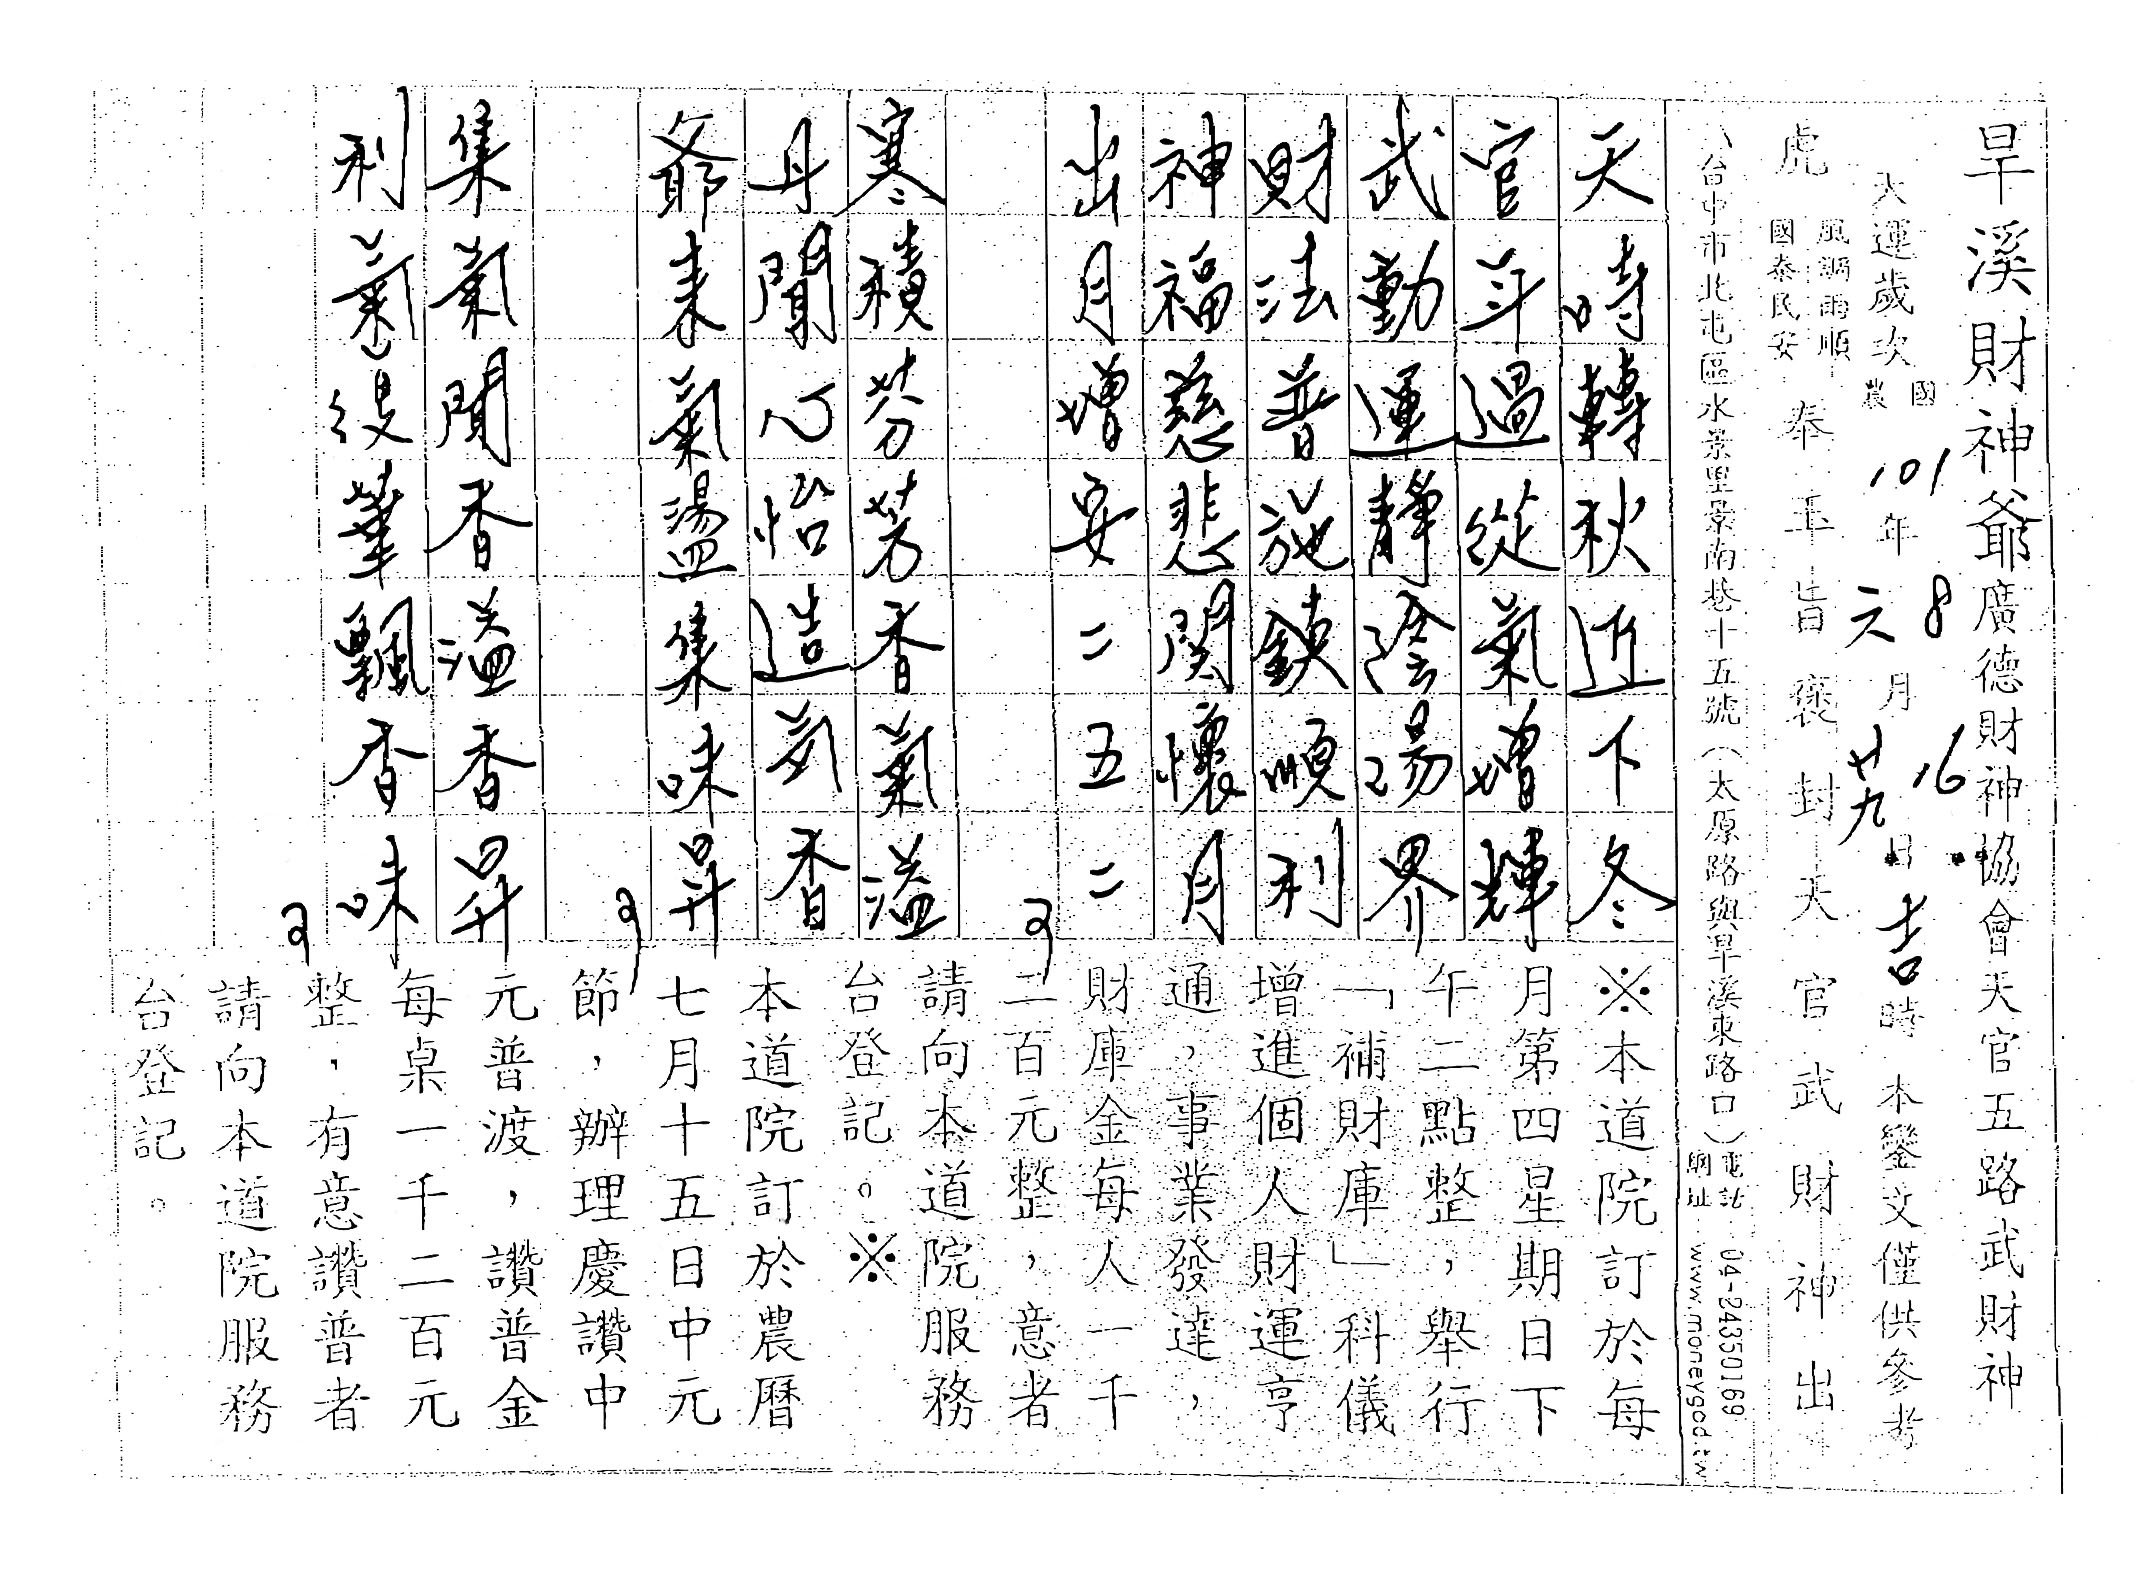 旱溪財神爺廣德財神協會天官五路武財神
天運歲次國農101年8元月16廿九日吉時 本鑾文僅供參考
風調雨順
國泰民安
虎 奉玉旨褒封天官武財神出
台中市北屯區水景里景南巷十五號(太原路與旱溪東路口)
電話 04-24350169
網址 www.moneygod.tw
天時轉秋近下冬
官斗過從氣增輝
武動運靜陰陽界
財法普施鎮順利
神福慈悲関懷月
出月增安二五二
寒積芬芳香氣溢
丹聞心怡造氣香
爺來氣盪集味昇
集氣聞香溢香昇
利氣優華飄香味
※本道院訂於每
月第四星期日下
午二點整,舉行
「補財庫」科儀
增進個人財運亨
通,事業發達,
財庫金每人一千
二百元整,意者
請向本道院服務
台登記。※
本道院訂於農曆
七月十五日中元
節,辦理慶讚中
元普渡,讚普金
每桌一千二百元
整,有意讚普者
請向本道院服務
台登記。